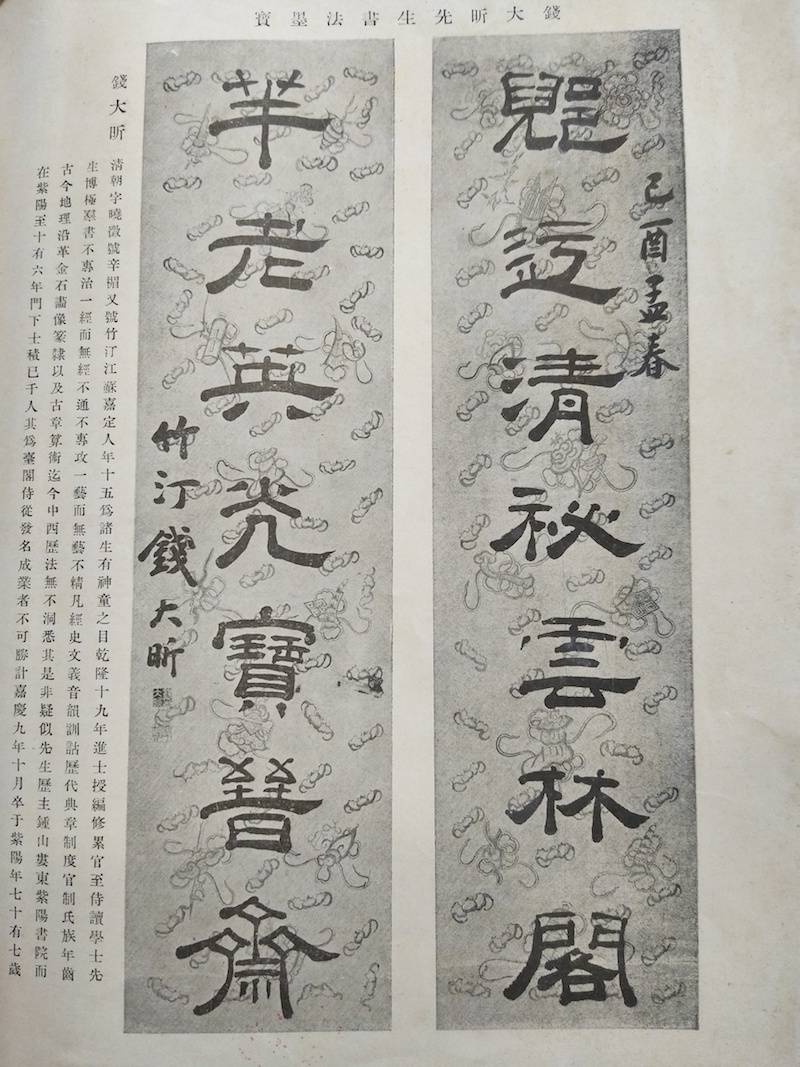 錢大昕先生書法墨寶
己酉孟春
郳迃清祕雲林閣
羋老英光寶晉齋
竹汀錢大昕
錢大昕
清朝字曉徵號辛楣又號竹汀江蘇嘉定人年十五爲諸生有神童之目乾隆十九年進士授編修累官至侍讀學士先
生博極羣書不專治一經而無經不通不專攻一藝而無藝不精凡經史文義音韻訓詁歷代典章制度官制氏族年齒
古今地理沿革金石畫像篆隸以及古章算術迄今中西歷法無不洞悉其是非疑似先生歷主鍾山婁東紫陽書院而
在紫陽至十有六年門下士積已千人其爲臺閣侍從發名成業者不可勝計嘉慶九年十月卒于紫陽年七十有七歲